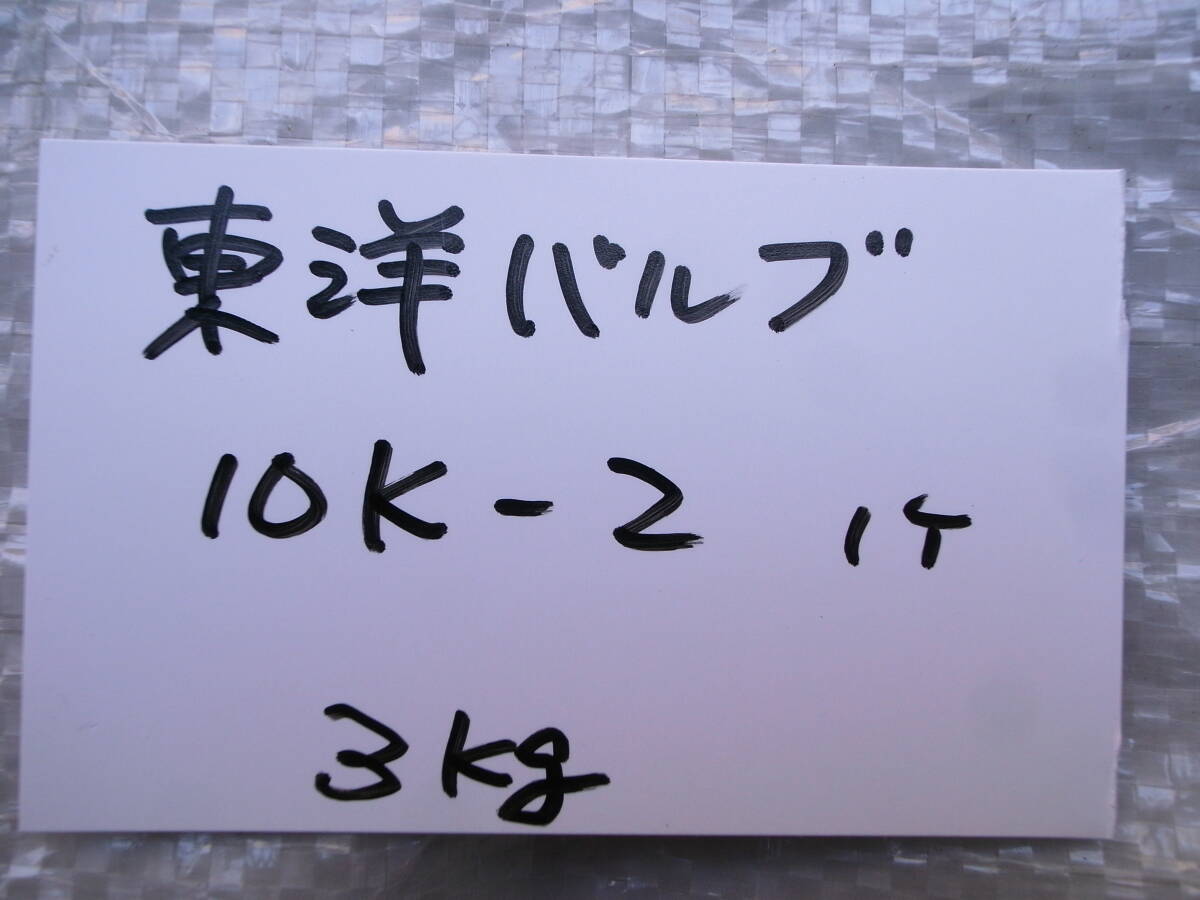 東洋バルブ
10K-2 1ケ
3kg